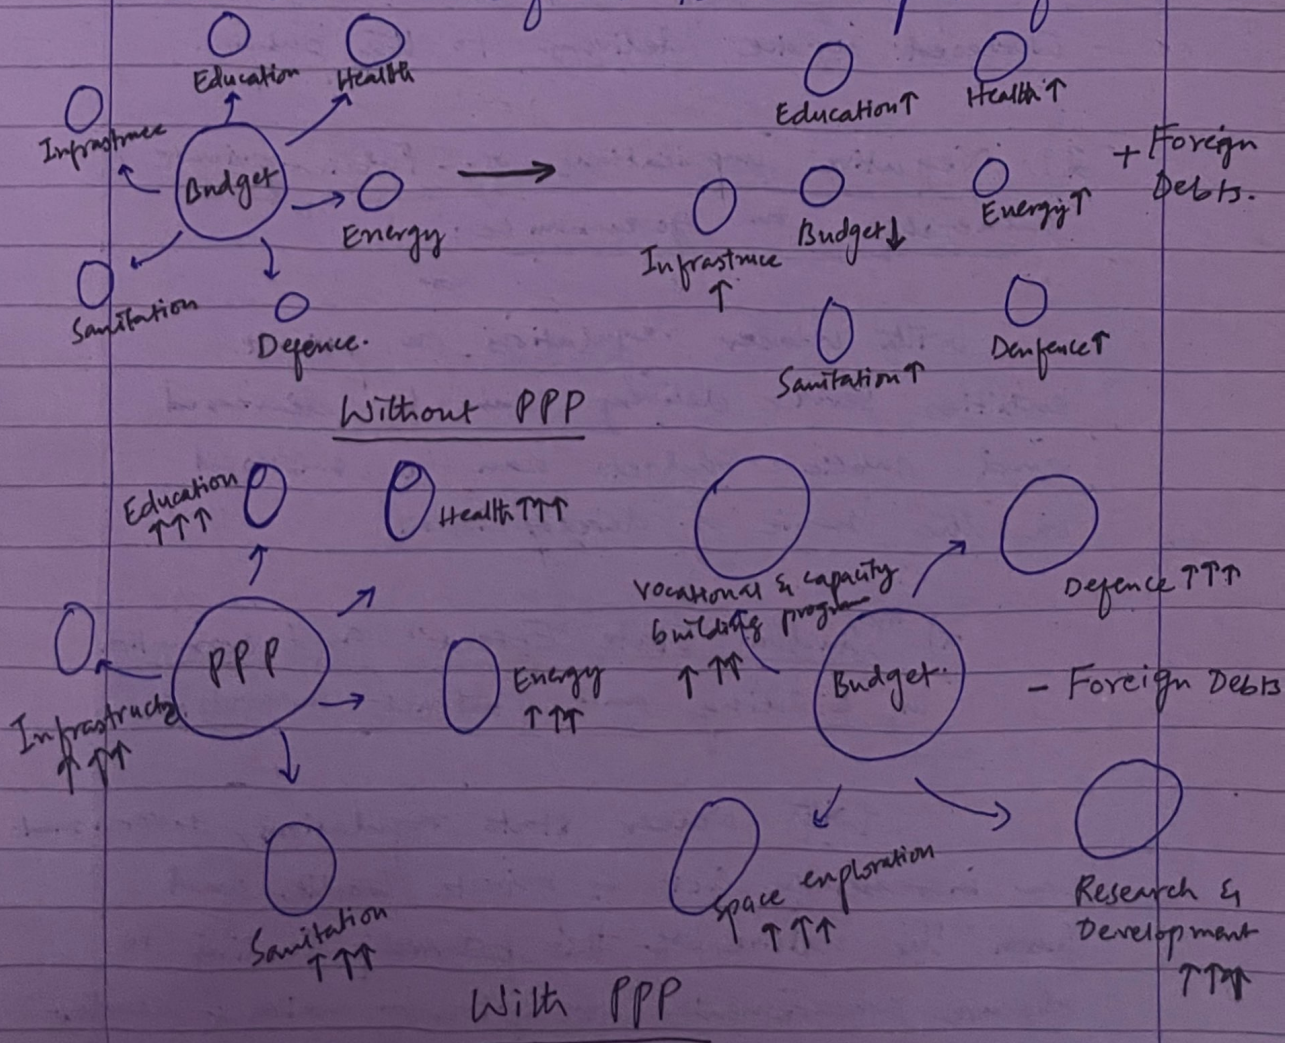 Education
Health
Infrastruce
Budget
Energy
Sanitation
Defence.
Education↑
Health↑
+ Foreign
Debts.
Infrastruce
↑
Budget↓
Energy↑
Sanitation↑
Denfence↑
Without PPP
Education
↑↑↑
Health↑↑↑
PPP
Infrastructu
↑ ↑↑
Energy
↑↑↑
Sanitation
↑↑↑
Vocational & capacity
building program
↑ ↑↑
Budget.
Defence ↑↑↑
- Foreign Debts
Space exploration
↑ ↑↑↑
Research &
Development
↑↑↑
With PPP